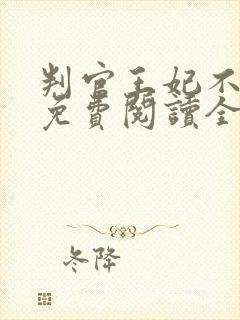 判官王妃不
免費閱讀全
冬降